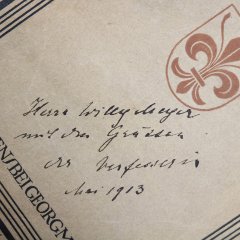 Herrn Willy Meyer
mit den Grüßen
der Verfasserin
Mai 1913
EN/BEI GEORG M